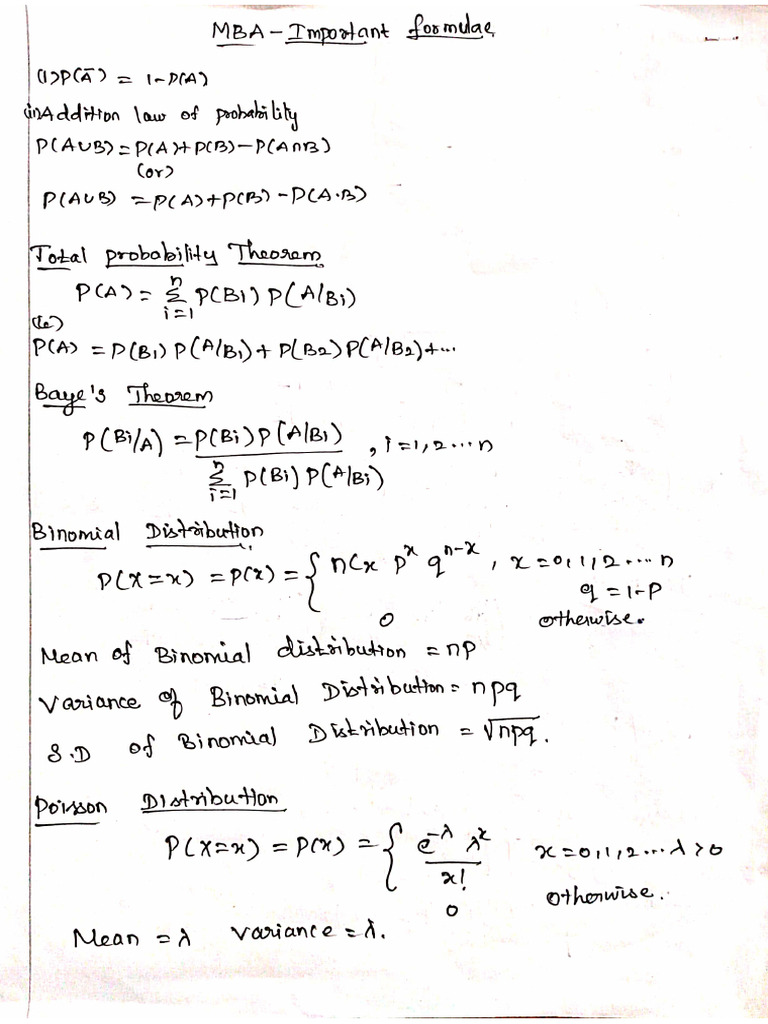 MBA - Important formulae
(i) P(Ā) = 1 - P(A)
(ii) Addition law of probability
P(A∪B) = P(A) + P(B) - P(A∩B)
(or)
P(A∪B) = P(A) + P(B) - P(A·B)
Total probability Theorem
P(A) = n Σ i=1 P(Bi) P(A/Bi)
(ie)
P(A) = P(B1) P(A/B1) + P(B2) P(A/B2) + ...
Baye's Theorem
P(Bi/A) = P(Bi) P(A/Bi) / n Σ i=1 P(Bi) P(A/Bi) , i = 1, 2 .... n
Binomial Distribution
P(X=x) = P(x) = { nCx p^x q^n-x , x = 0, 1, 2 .... n
q = 1-P
0 otherwise.
Mean of Binomial distribution = np
Variance of Binomial Distribution = npq
S.D of Binomial Distribution = √npq.
Poisson Distribution
P(X=x) = P(x) = { e^-λ λ^x / x! x = 0, 1, 2 ... λ > 0
0 otherwise.
Mean = λ Variance = λ.